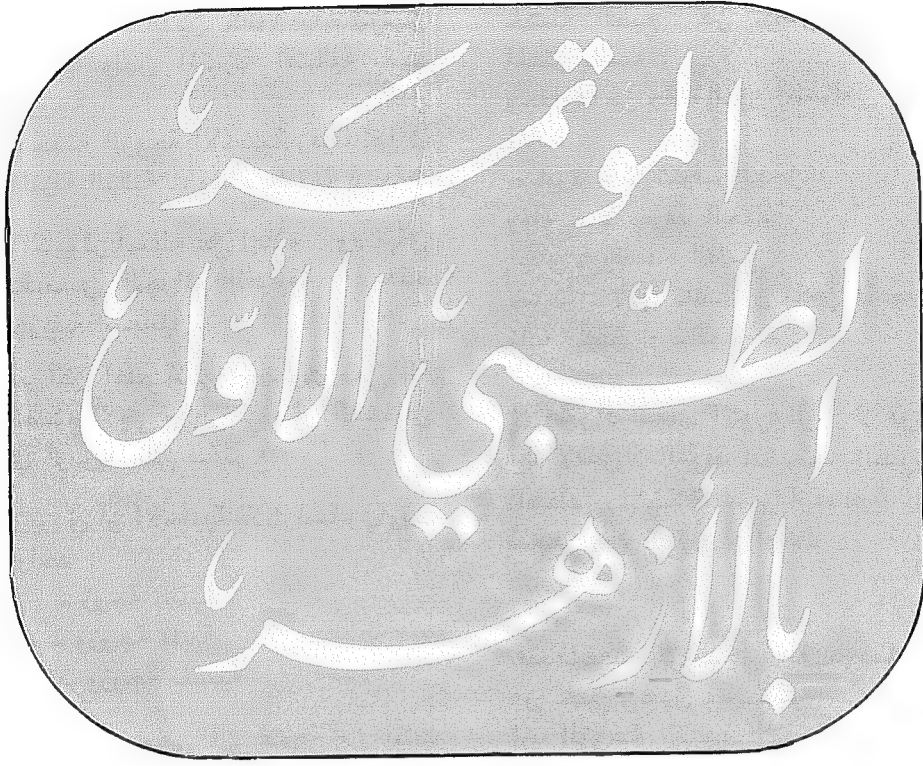 الموتمر
الطبّي الأوّل
بالأزهر